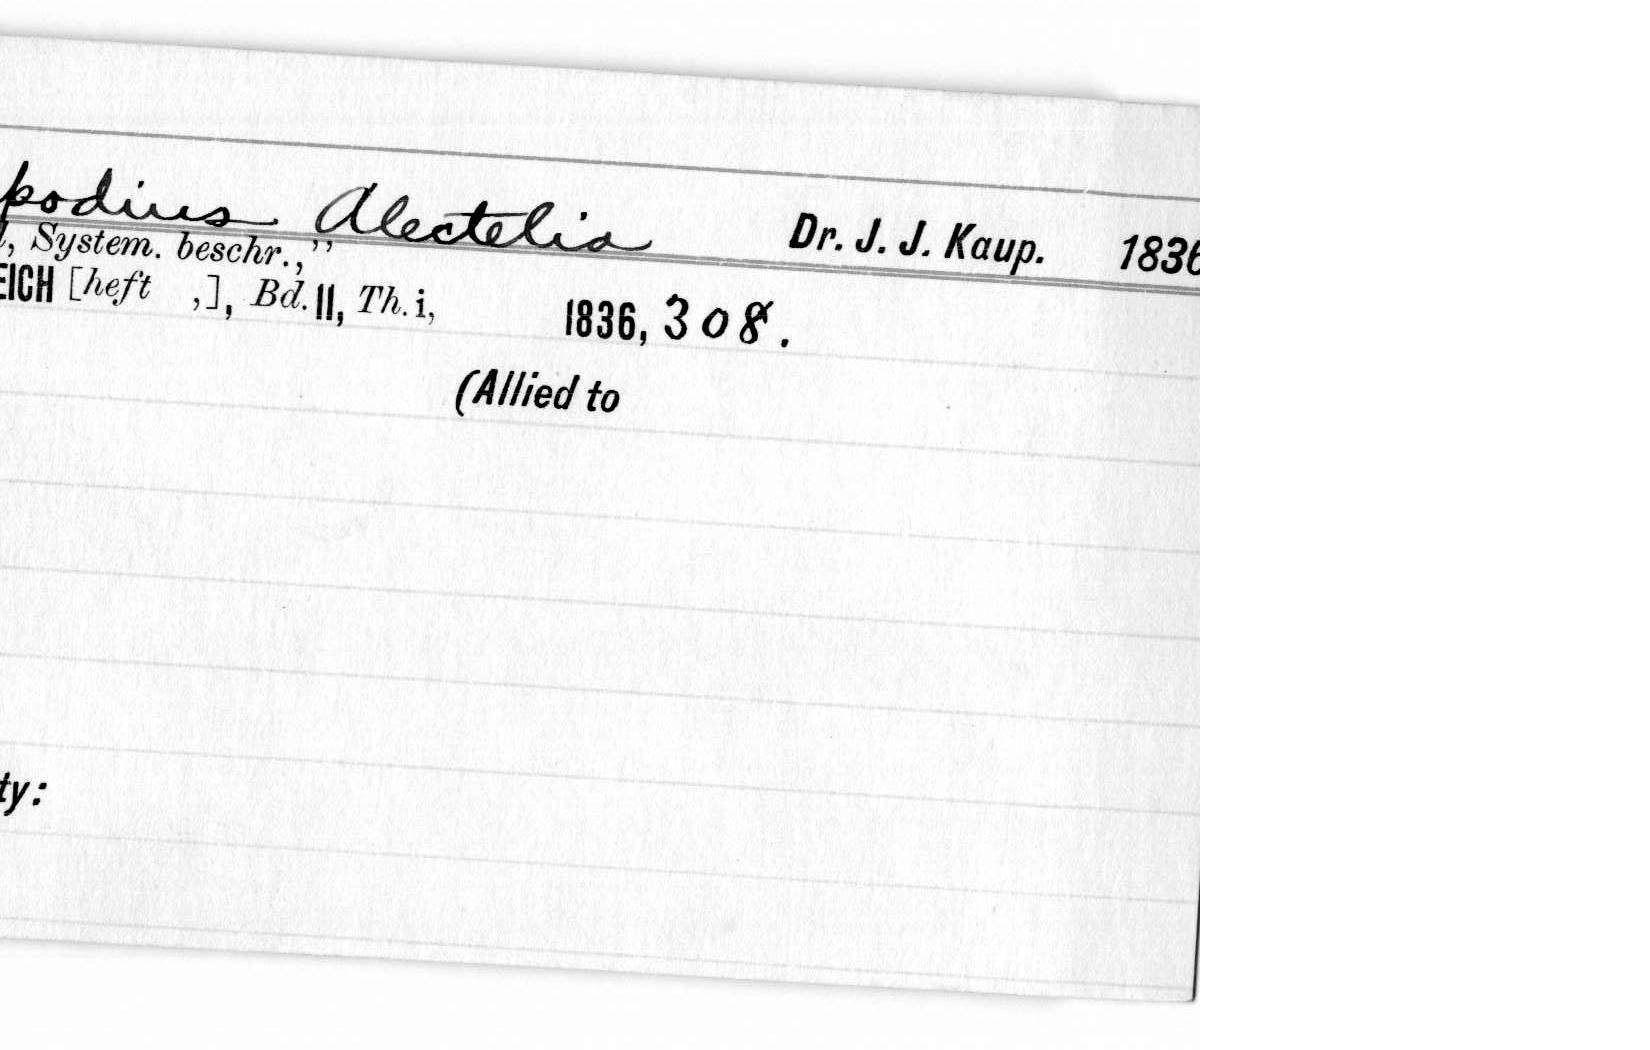 podius Alectelia Dr. J. J. Kaup. 1836
, System. beschr.,”
EICH [heft ,], Bd. II, Th. i, 1836, 308.
(Allied to
ty: